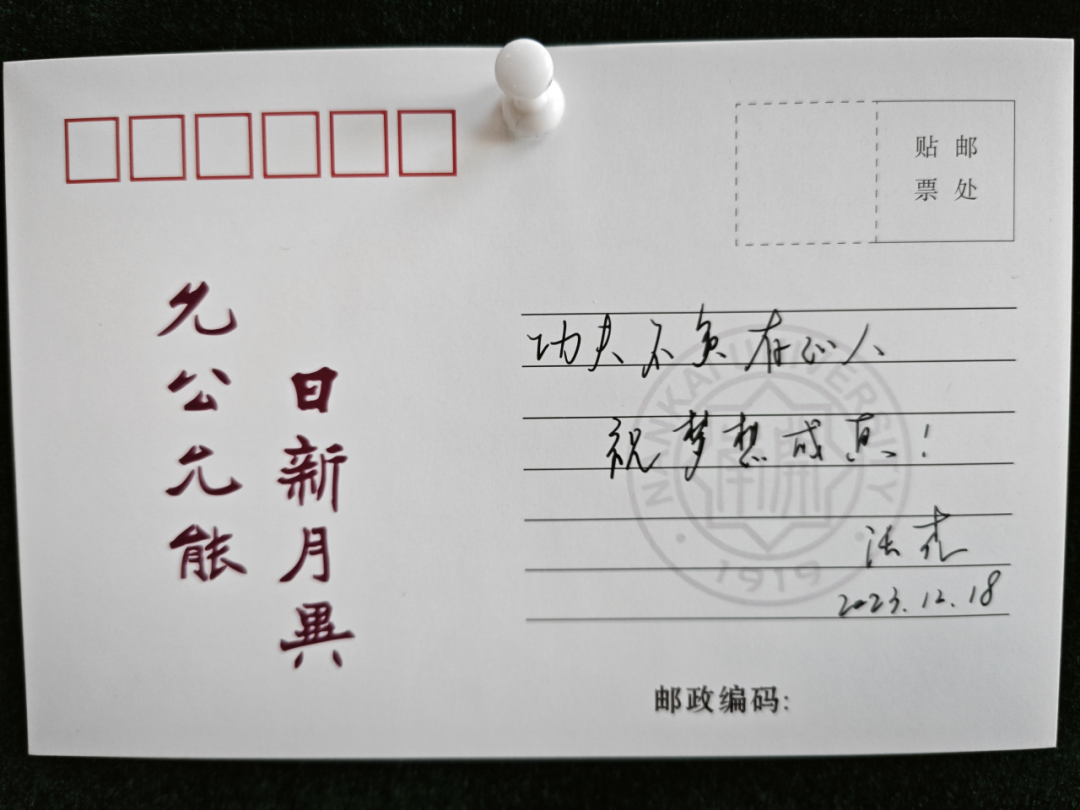 贴邮
票处
允公允能
日新月異
功夫不负有心人
祝梦想成真!
2023.12.18
NANKAI UNIVERSITY
1919
邮政编码: